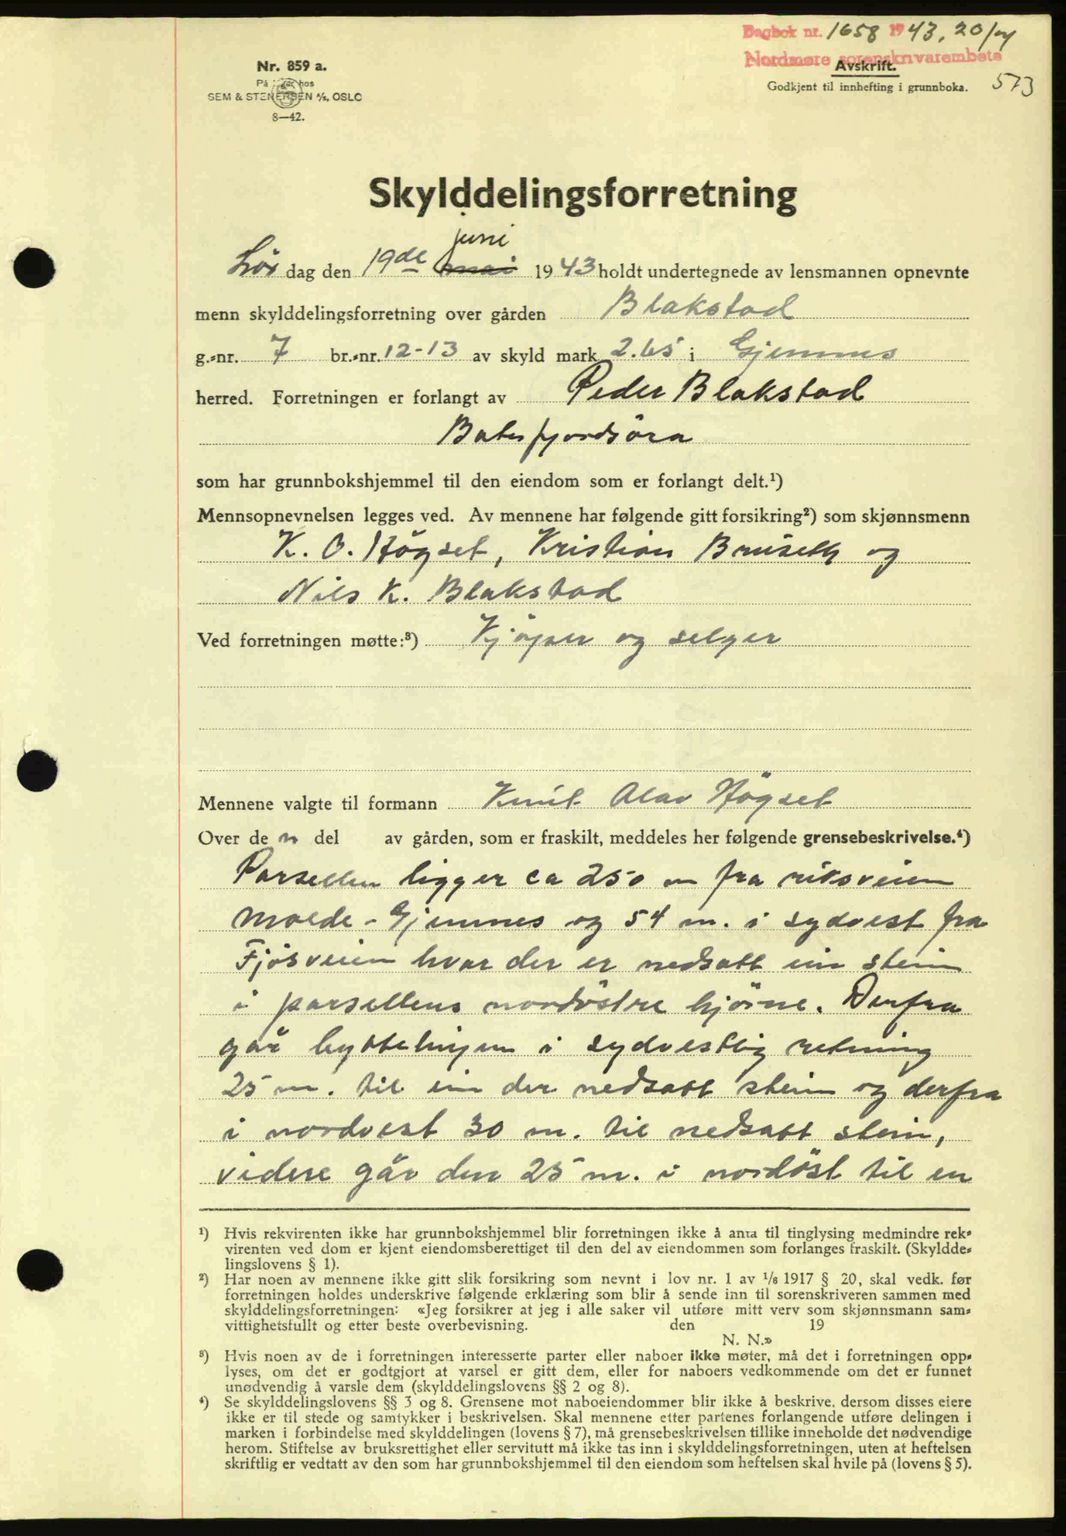 Dagbok nr. 1658 1943, 20/7
Nordmøre sorenskriverembete
Nr. 859 a.
Avskrift.
SEM & STENERSEN A/S, OSLO
Godkjent til innhefting i grunnboka.
573
8—42.
Skylddelingsforretning
juni
Lör dag den 19de mai 1943 holdt undertegnede av lensmannen opnevnte
menn skylddelingsforretning over gården Blakstad
g.-nr. 7 br.-nr. 12-13 av skyld mark 2.65 i Gjemnes
herred. Forretningen er forlangt av Peder Blakstad
Batnfjordsöra
som har grunnbokshjemmel til den eiendom som er forlangt delt.¹)
Mennsopnevnelsen legges ved. Av mennene har følgende gitt forsikring²) som skjønnsmenn
K. O. Högset, Kristian Bruseth og
Nils K. Blakstad
Ved forretningen møtte:³) Kjöper og selger
Mennene valgte til formann Knut Olav Högset
Over de n del av gården, som er fraskilt, meddeles her følgende grensebeskrivelse.⁴)
Parsellen ligger ca 250 m fra riksveien
Molde - Gjemnes og 54 m. i sydvest fra
Fjösveien hvor der er nedsatt ein stein
i parsellens nordöstre hjörne. Derfra
går byttelinjen i sydvestlig retning
25 m. til ein der nedsatt stein og derfra
i nordvest 30 m. til nedsatt stein,
videre går den 25 m. i nordöst til en
¹) Hvis rekvirenten ikke har grunnbokshjemmel blir forretningen ikke å anta til tinglysing medmindre rek-
virenten ved dom er kjent eiendomsberettiget til den del av eiendommen som forlanges fraskilt. (Skyldde-
lingslovens § 1).
²) Har noen av mennene ikke gitt slik forsikring som nevnt i lov nr. 1 av ¹/₆ 1917 § 20, skal vedk. før
forretningen holdes underskrive følgende erklæring som blir å sende inn til sorenskriveren sammen med
skylddelingsforretningen: «Jeg forsikrer at jeg i alle saker vil utføre mitt verv som skjønnsmann sam-
vittighetsfullt og etter beste overbevisning. den 19
N. N.»
³) Hvis noen av de i forretningen interesserte parter eller naboer ikke møter, må det i forretningen opp-
lyses, om det er godtgjort at varsel er gitt dem, eller for naboers vedkommende om det er funnet
unødvendig å varsle dem (skylddelingslovens §§ 2 og 8).
⁴) Se skylddelingslovens §§ 3 og 8. Grensene mot naboeiendommer blir ikke å beskrive, dersom disses eiere
ikke er til stede og samtykker i beskrivelsen. Skal mennene etter partenes forlangende utføre delingen i
marken i forbindelse med skylddelingen (lovens § 7), må grensebeskrivelsen tillike inneholde det nødvendige
herom. Stiftelse av bruksrettighet eller servitutt må ikke tas inn i skylddelingsforretningen, uten at heftelsen
skriftlig er vedtatt av den som har grunnbokshjemmel til den eiendom som heftelsen skal hvile på (lovens § 5).